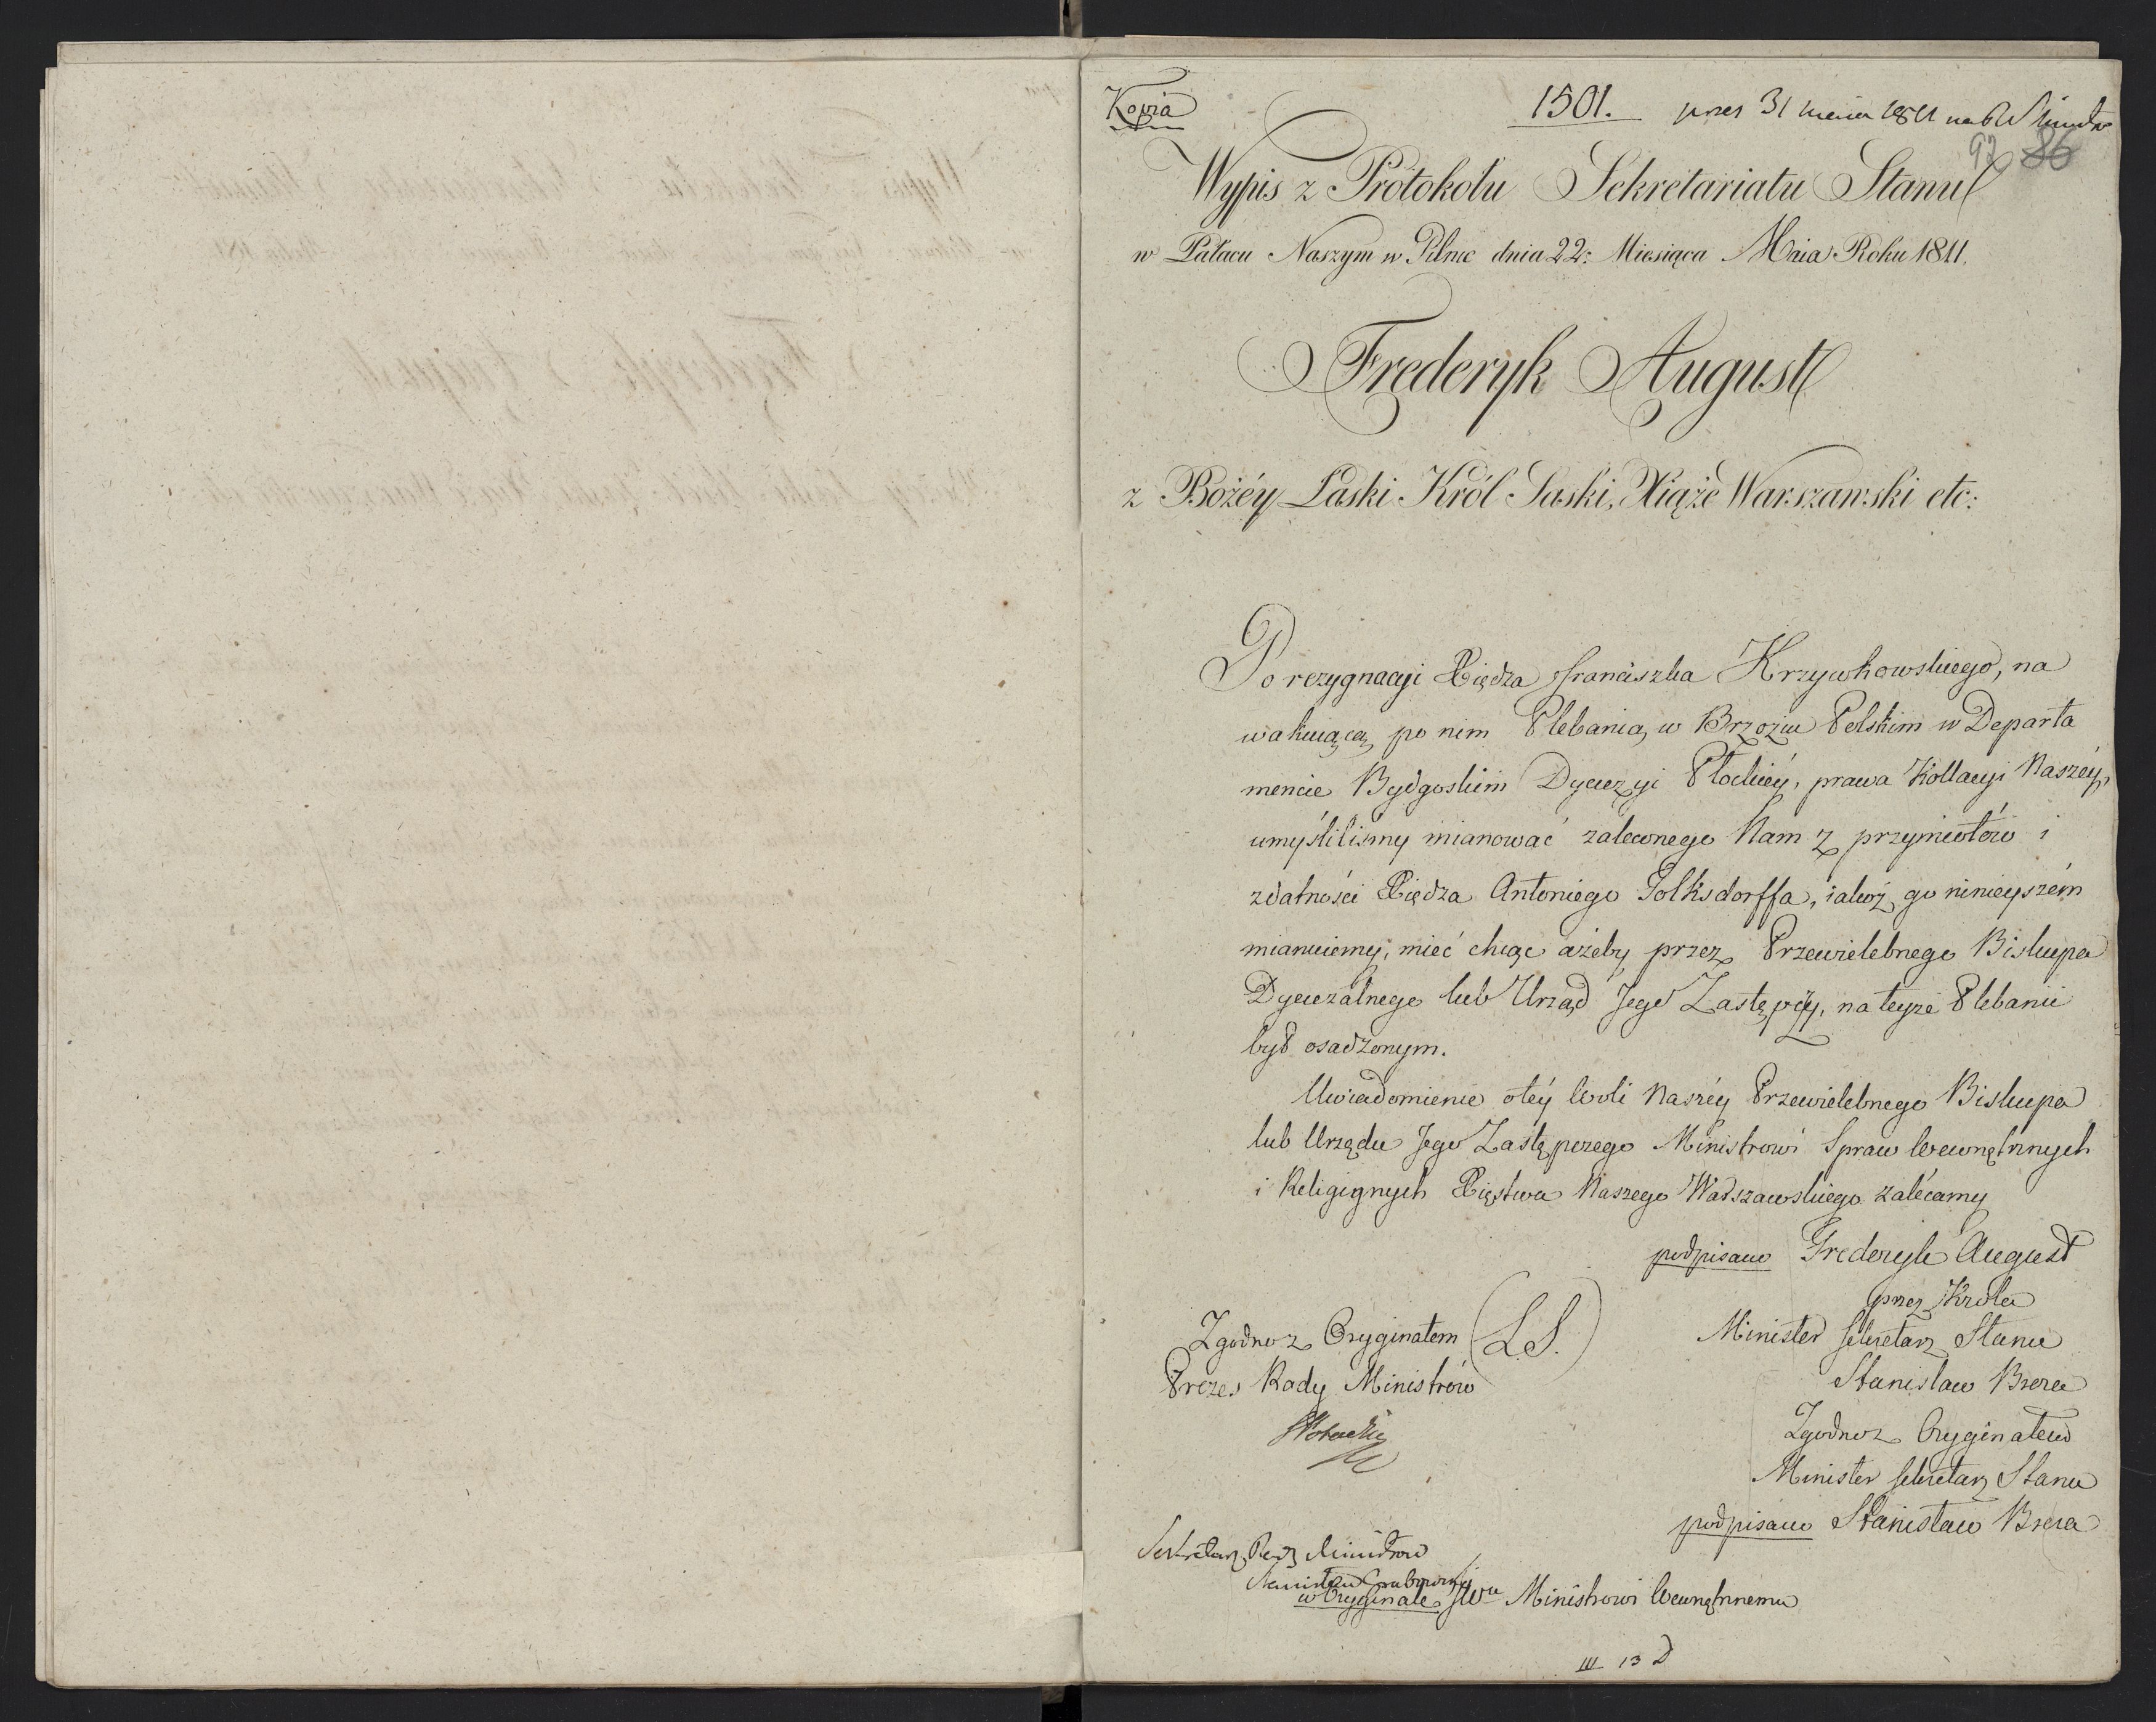 Kopia
1501. 31 1811
92 86
Wypis z Protokołu Sekretariatu Stanu
w Pałacu Naszym w Pilnic dnia 22: Miesiąca Maia Roku 1811.
Frederyk August
z Bożéy Łaski Król Saski, Xiąże Warszawski etc:
Po rezygnacyi Xiędza Franciszka Krzywkowskiego, na
wakuiącą po nim Plebanią w Brzoziu Polskim w Departa
mencie Bydgoskim Dyecezyi Płockiéy, prawa Kollacyi Naszéy,
umyśliliśmy mianować zaleconego Nam z przymiotów i
zdatności Xiędza Antoniego Polksdorffa, iakoż go ninieyszém
mianuiemy, mieć chcąc ażeby przez Przewielebnego Biskupa
Dyecezalnego lub Urząd Jego Zastępczy, na teyże Plebanii
był osadzonym.
Uwiadomienie o téy Woli Naszéy Przewielebnego Biskupa
lub Urzędu Jego Zastępczego Ministrowi Spraw Wewnętrznych
i Religiynych Xięstwa Naszego Warszawskiego zalécamy
podpisano Frederyk August
przez Króla
Zgodno z Oryginałem (L.S.) Minister Sekretarz Stanu
Prezes Rady Ministrów Stanisław Breza
Potocki
Zgodno z Oryginałem
Minister Sekretarz Stanu
podpisano Stanisław Breza
Sekretarz Rady Ministrow
Stanisław Grabowski
w Oryginale JWu Ministrowi Wewnętrznemu
III 13 D